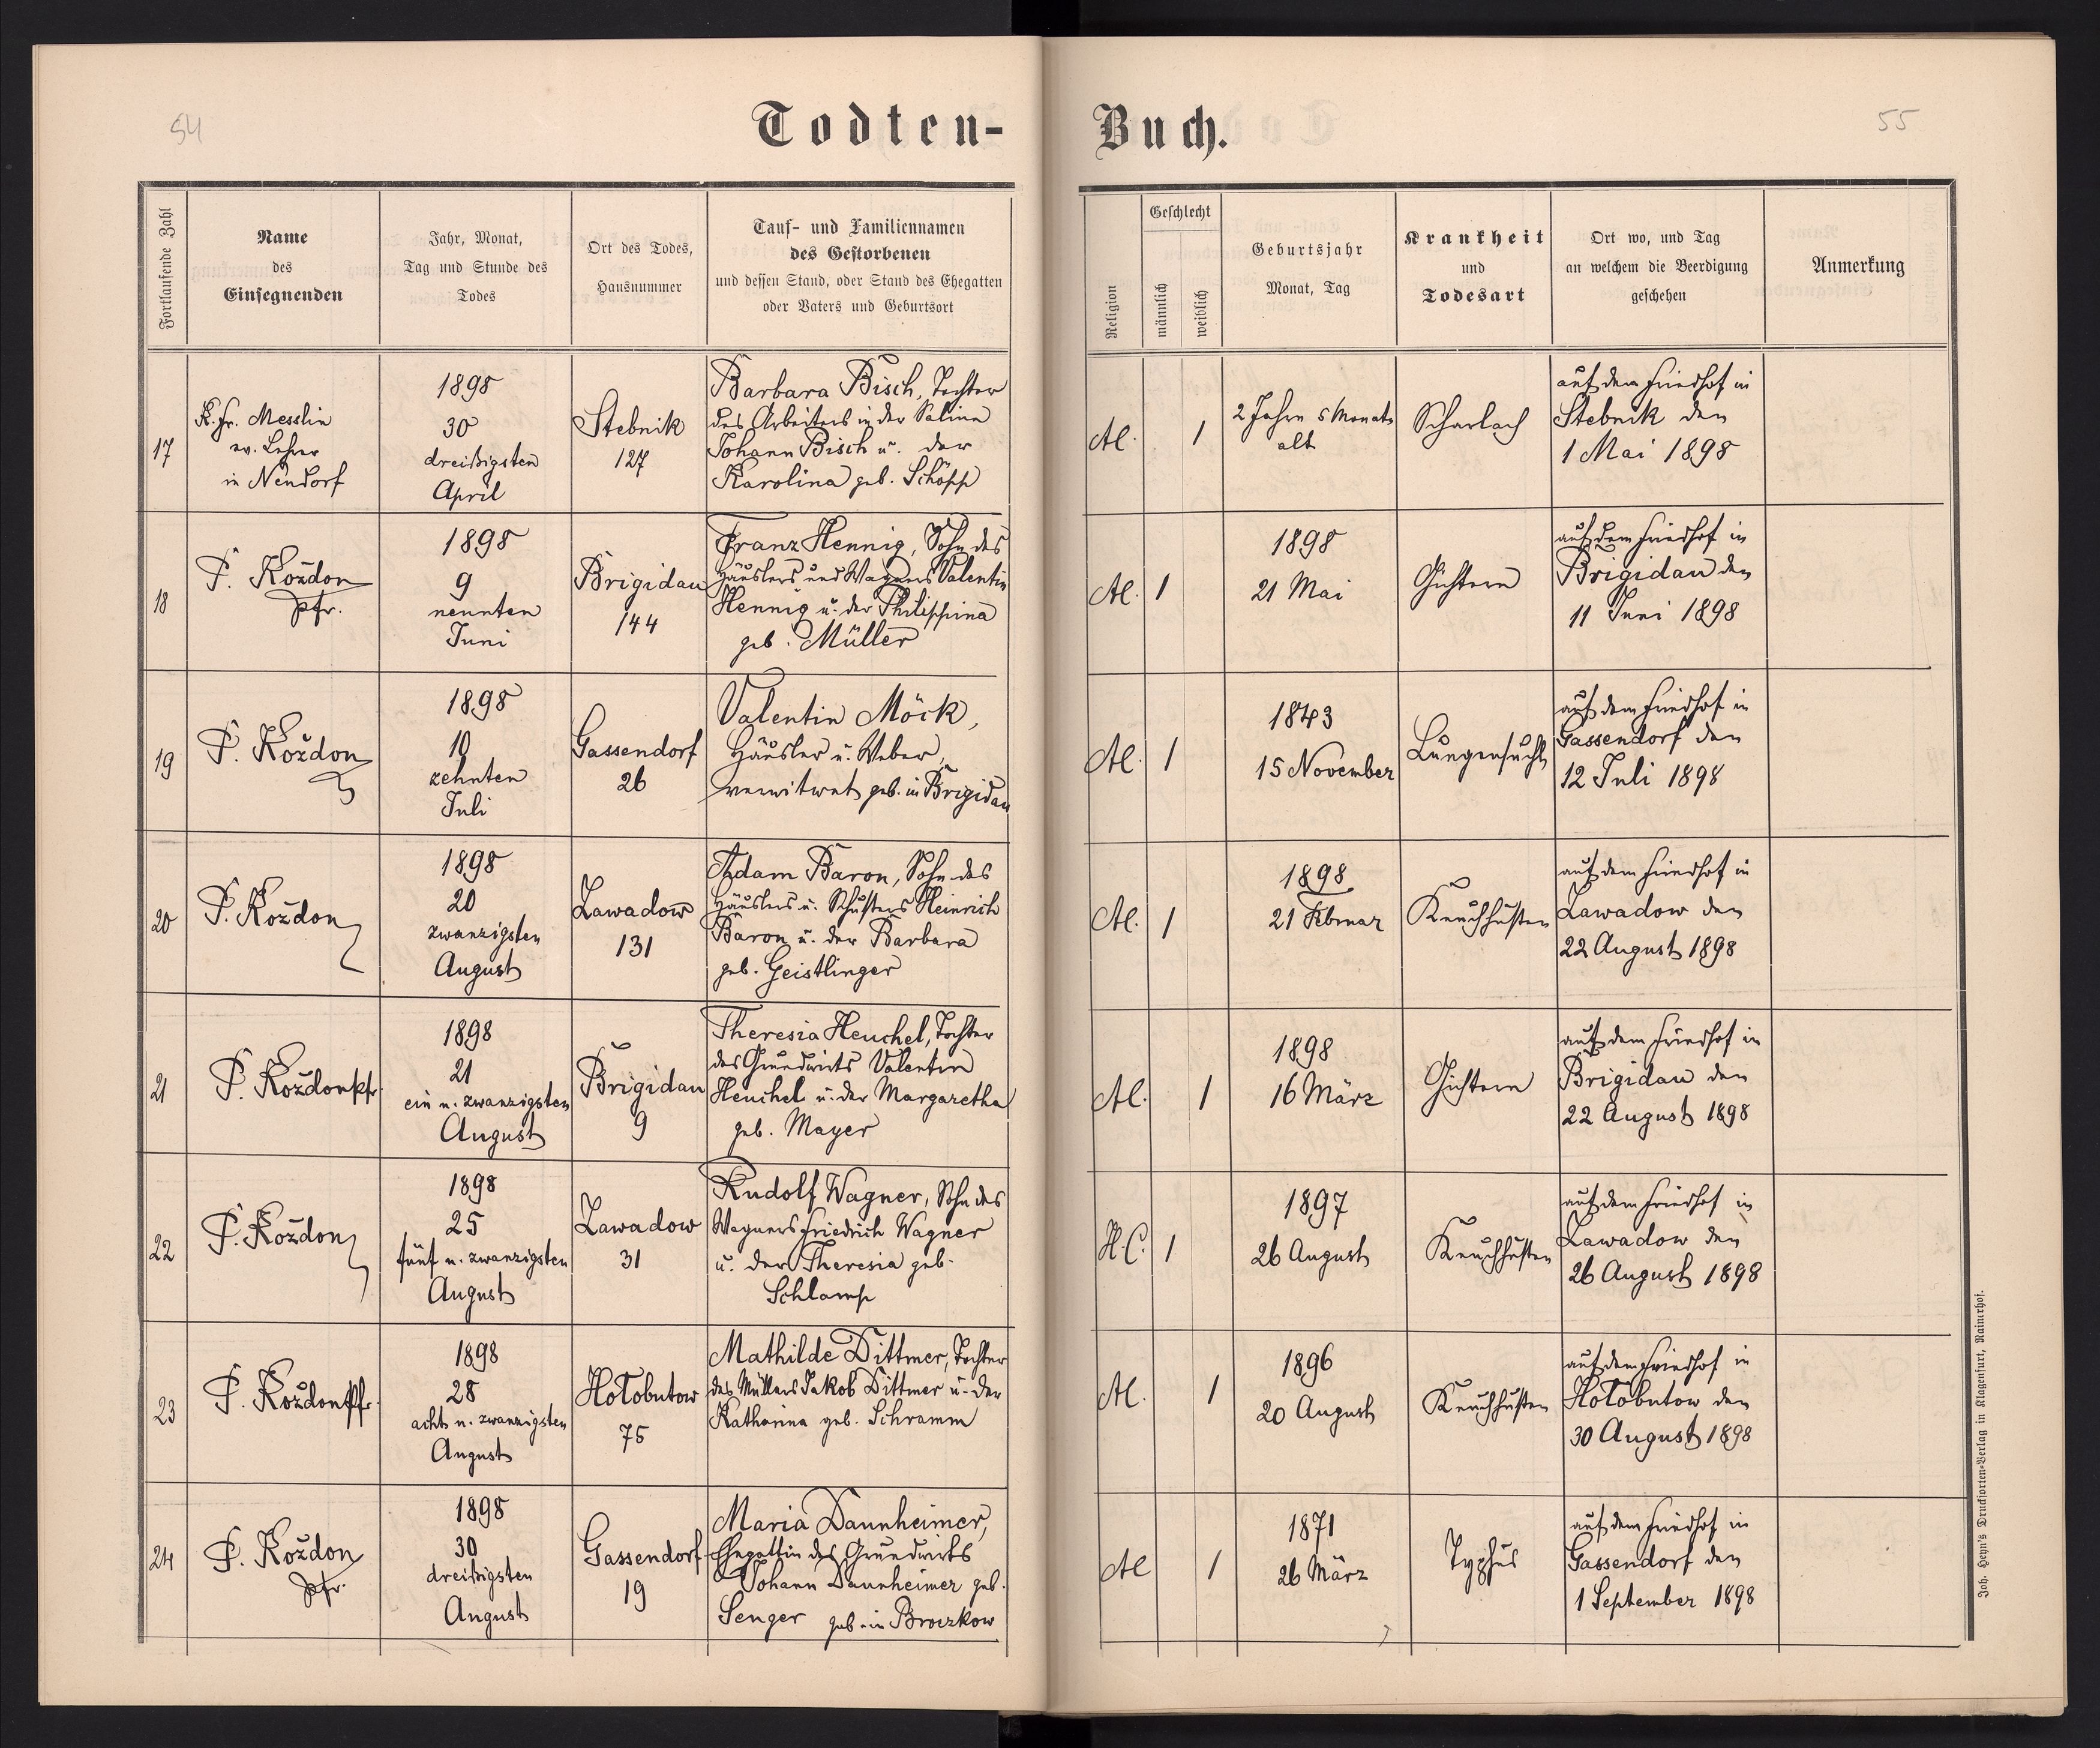 54
Todten-
Buch.
55
Fortlaufende Zahl
Name
des
Einsegnenden
Jahr, Monat,
Tag und Stunde des
Todes
Ort des Todes,
Hausnummer
Tauf- und Familiennamen
des Gestorbenen
und dessen Stand, oder Stand des Ehegatten
oder Vaters und Geburtsort
Religion
Geschlecht
männlich
weiblich
Geburtsjahr
Monat, Tag
Krankheit
und
Todesart
Ort wo, und Tag
an welchem die Beerdigung
geschehen
Anmerkung
17
K. Fr. Messlin
ev. Lehrer
in Neudorf
1898
30
dreißigsten
April
Stebnik
127
Barbara Bisch, Tochter
des Arbeiters in der Saline
Johann Bisch u. der
Karolina geb. Schöpp
A.C.
1
2 Jahre 5 Monate
alt
Scharlach
auf dem Friedhof in
Stebnik den
1 Mai 1898
18
P. Koždon
Pfr.
1898
9
neunten
Juni
Brigidau
144
Franz Hennig, Sohn des
Häuslers und Wagners Valentin
Hennig u. der Philippina
geb. Müller
A.C.
1
1898
21 Mai
Gichtern
auf dem Friedhof in
Brigidau den
11 Juni 1898
19
P. Koždon
1898
10
zehnten
Juli
Gassendorf
26
Valentin Möck,
Häusler u. Weber,
verwitwet geb. in Brigidau
A.C.
1
1843
15 November
Lungensucht
auf dem Friedhof in
Gassendorf den
12 Juli 1898
20
P. Koždon
1898
20
zwanzigsten
August
Zawadow
131
Adam Baron, Sohn des
Häuslers u. Schusters Heinrich
Baron u. der Barbara
geb. Geistlinger
A.C.
1
1898
21 Februar
Keuchhusten
auf dem Friedhof in
Zawadow den
22 August 1898
21
P. Koždon Pfr.
1898
21
ein u. zwanzigsten
August
Brigidau
9
Theresia Heuchel, Tochter
des Grundwirts Valentin
Heuchel u. der Margaretha
geb. Mayer
A.C.
1
1898
16 März
Gichtern
auf dem Friedhof in
Brigidau den
22 August 1898
22
P. Koždon
1898
25
fünf u. zwanzigsten
August
Zawadow
31
Rudolf Wagner, Sohn des
Wagners Friedrich Wagner
u. der Theresia geb.
Schlamp
H.C.
1
1897
26 August
Keuchhusten
auf dem Friedhof in
Zawadow den
26 August 1898
23
P. Koždon Pfr.
1898
28
acht u. zwanzigsten
August
Hołobutow
75
Mathilde Dittmer, Tochter
des Müllers Jakob Dittmer u. der
Katharina geb. Schramm
A.C.
1
1896
20 August
Keuchhusten
auf dem Friedhof in
Hołobutow den
30 August 1898
24
P. Koždon
Pfr.
1898
30
dreißigsten
August
Gassendorf
19
Maria Dannheimer,
Ehegattin des Grundwirts
Johann Dannheimer geb.
Senger geb. in Broczkow
A.C.
1
1871
26 März
Typhus
auf dem Friedhof in
Gassendorf den
1 September 1898
Joh. Heyn's Drucksorten-Verlag in Klagenfurt, Rainerhof.